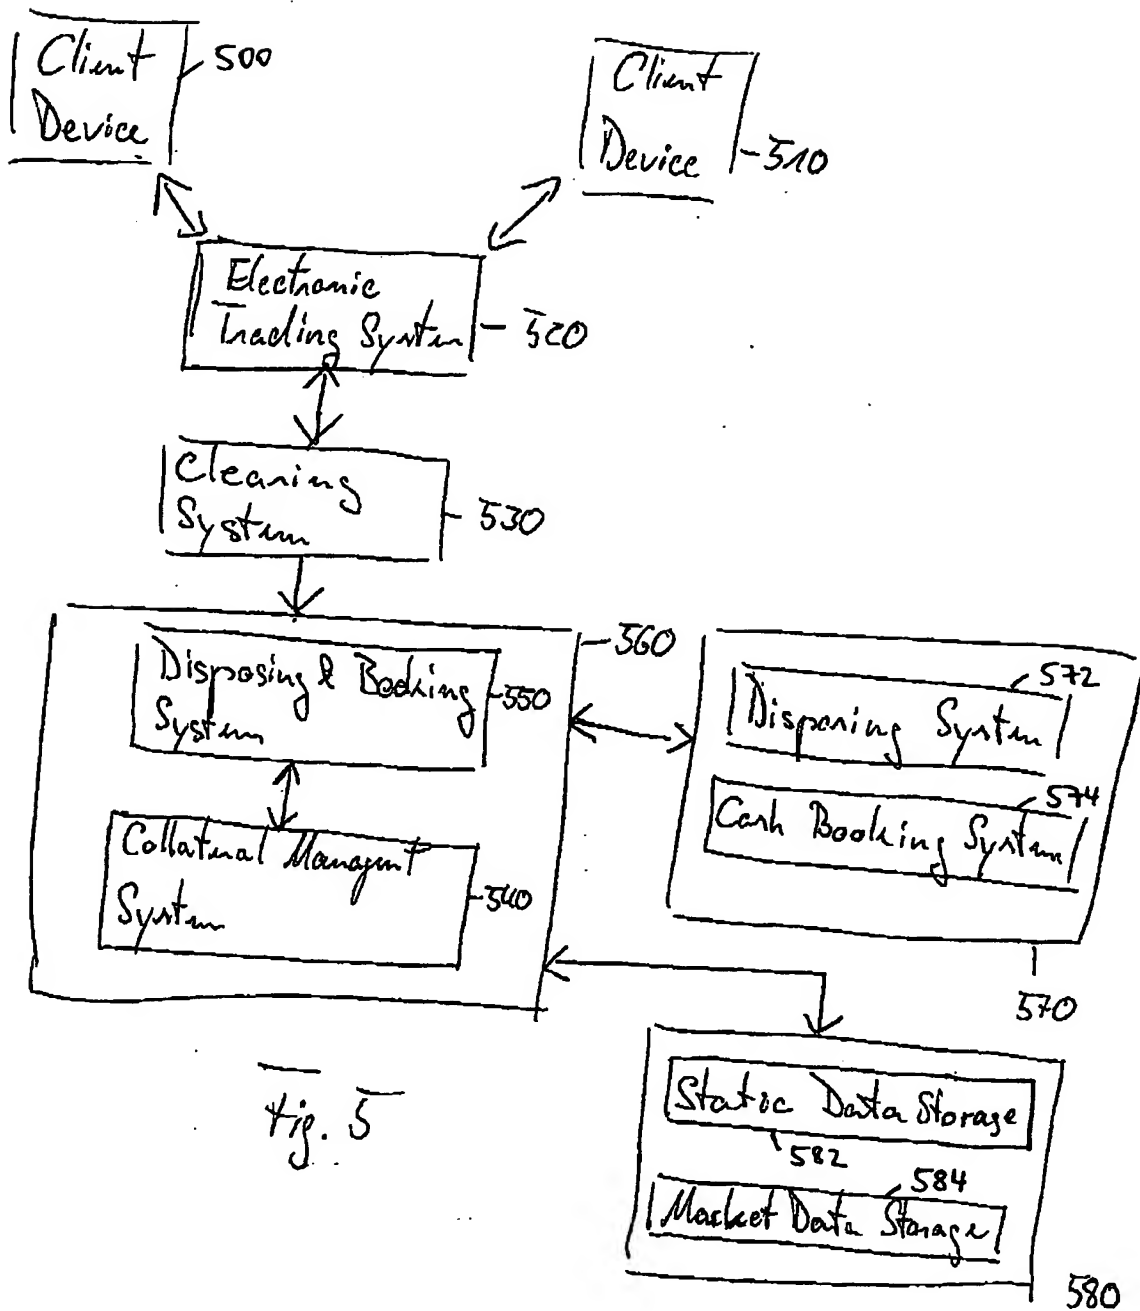 Client
Device
500
Client
Device
510
Electronic
Trading System
520
Clearing
System
530
560
Disposing & Booking
System
550
Collateral Managemt
System
540
572
Disposing System
574
Cash Booking System
570
Static Data Storage
582
584
Market Data Storage
580
Fig. 5